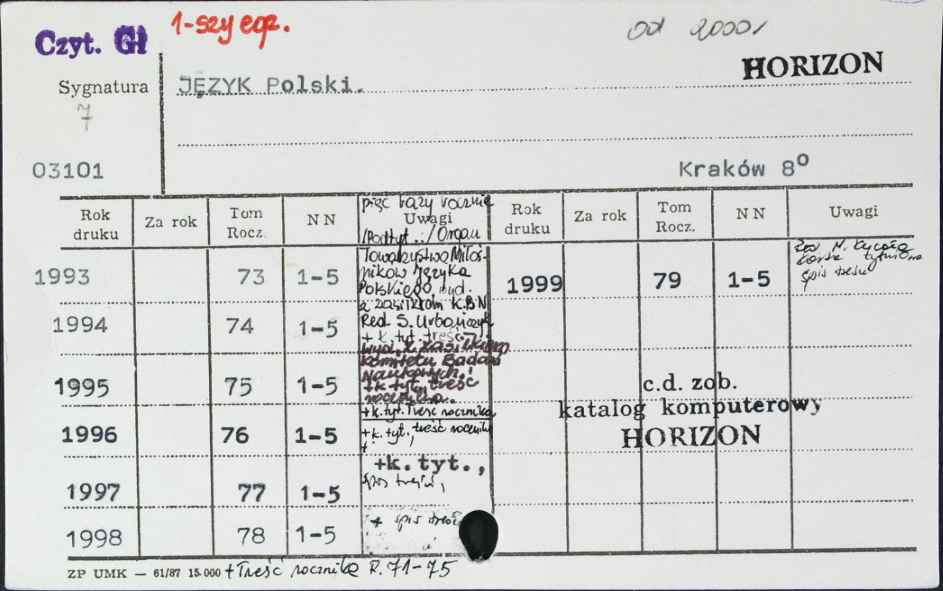 Czyt. Gł
1-szy egz.
od 2000r
HORIZON
Sygnatura
JĘZYK Polski.
7
03101
Kraków 8°
Rok druku Za rok Tom Rocz. N N Uwagi Rok druku Za rok Tom Rocz. N N Uwagi
pięć razy rocznie
/Podtyt.:/ Organ
1993 73 1-5
Towarzystwa Miłoś-
ników Języka
Polskiego, wyd.
z zasiłkiem K.B.N
Red S. Urbańczyk
1999 79 1-5
Red. M. Kucała
karta tytułowa
spis treści
1994 74 1-5
+ k. tyt. treść
wyd. z zasiłkiem
Komitetu Badań
Naukowych.
1995 75 1-5
+k. tyt. treść
rocznika.
+k. tyt. Treść rocznika
1996 76 1-5
+ k. tyt., treść rocznika
+
+k. tyt.,
1997 77 1-5
spis treści,
1998 78 1-5
+ spis treści
c.d. zob.
katalog komputerowy
HORIZON
ZP UMK — 61/87 15.000 + Treść rocznika R. 71-75